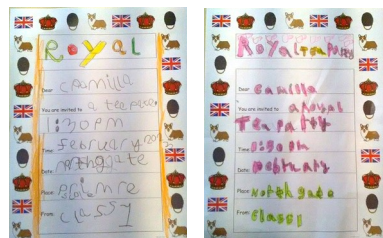 Royal
Dear Camilla
You are invited to a tea party
1:30pm
Time: february
Date: Northgate
Place:
From: class 1
Royal tea party
Dear Camilla
You are invited to a Royal
Tea party
Time:
Date: February
Place: Northgate
From: class 1